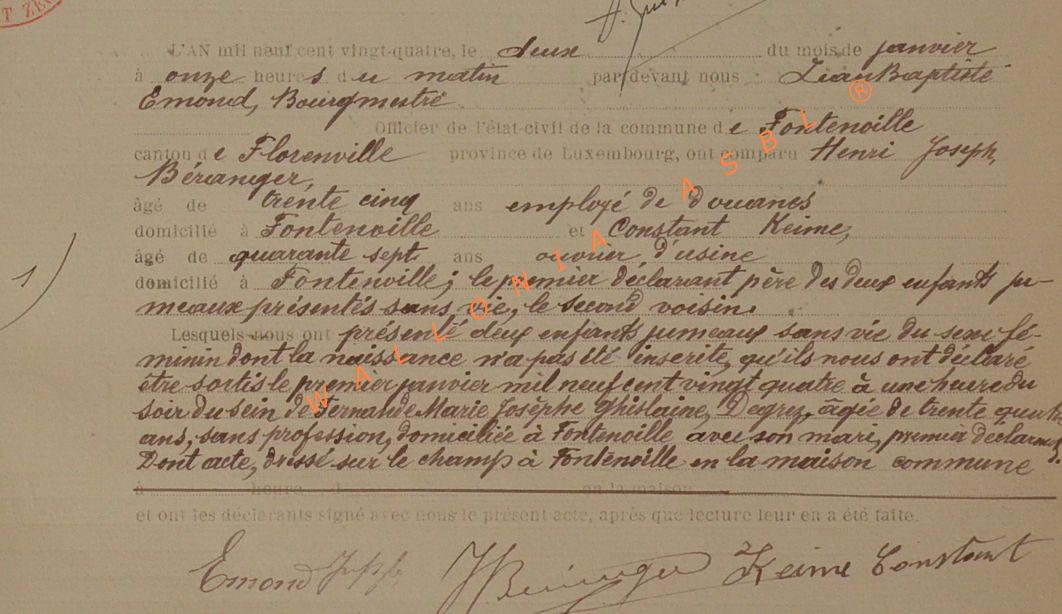 L'AN mil neuf cent vingt-quatre, le deux du mois de janvier
à onze heures du matin par devant nous Jean Baptiste
Emond, Bourgmestre
Officier de l'état-civil de la commune de Fontenoille
canton de Florenville province de Luxembourg, ont comparu Henri Joseph,
Béranger,
âgé de trente cinq ans employé de douanes
domicilié à Fontenoille et Constant Keime,
âgé de quarante sept ans ouvrier d'usine
domicilié à Fontenoille; le premier déclarant père des deux enfants ju-
meaux présentés sans vie, le second voisin.
Lesquels nous ont présenté deux enfants jumeaux sans vie du sexe fé-
minin dont la naissance n'a pas été inscrite, qu'ils nous ont déclaré
être sortis le premier janvier mil neuf cent vingt quatre à une heure du
soir du sein de Fernande Marie Josèphe Ghislaine, Degrez, âgée de trente quatre
ans, sans profession, domiciliée à Fontenoille avec son mari, premier déclarant.
Dont acte, dressé sur le champ à Fontenoille en la maison commune
à heure en la maison
et ont les déclarants signé avec nous le présent acte, après que lecture leur en a été faite.
1)
Emond Keime Constant
WALLONIA ASBL ®